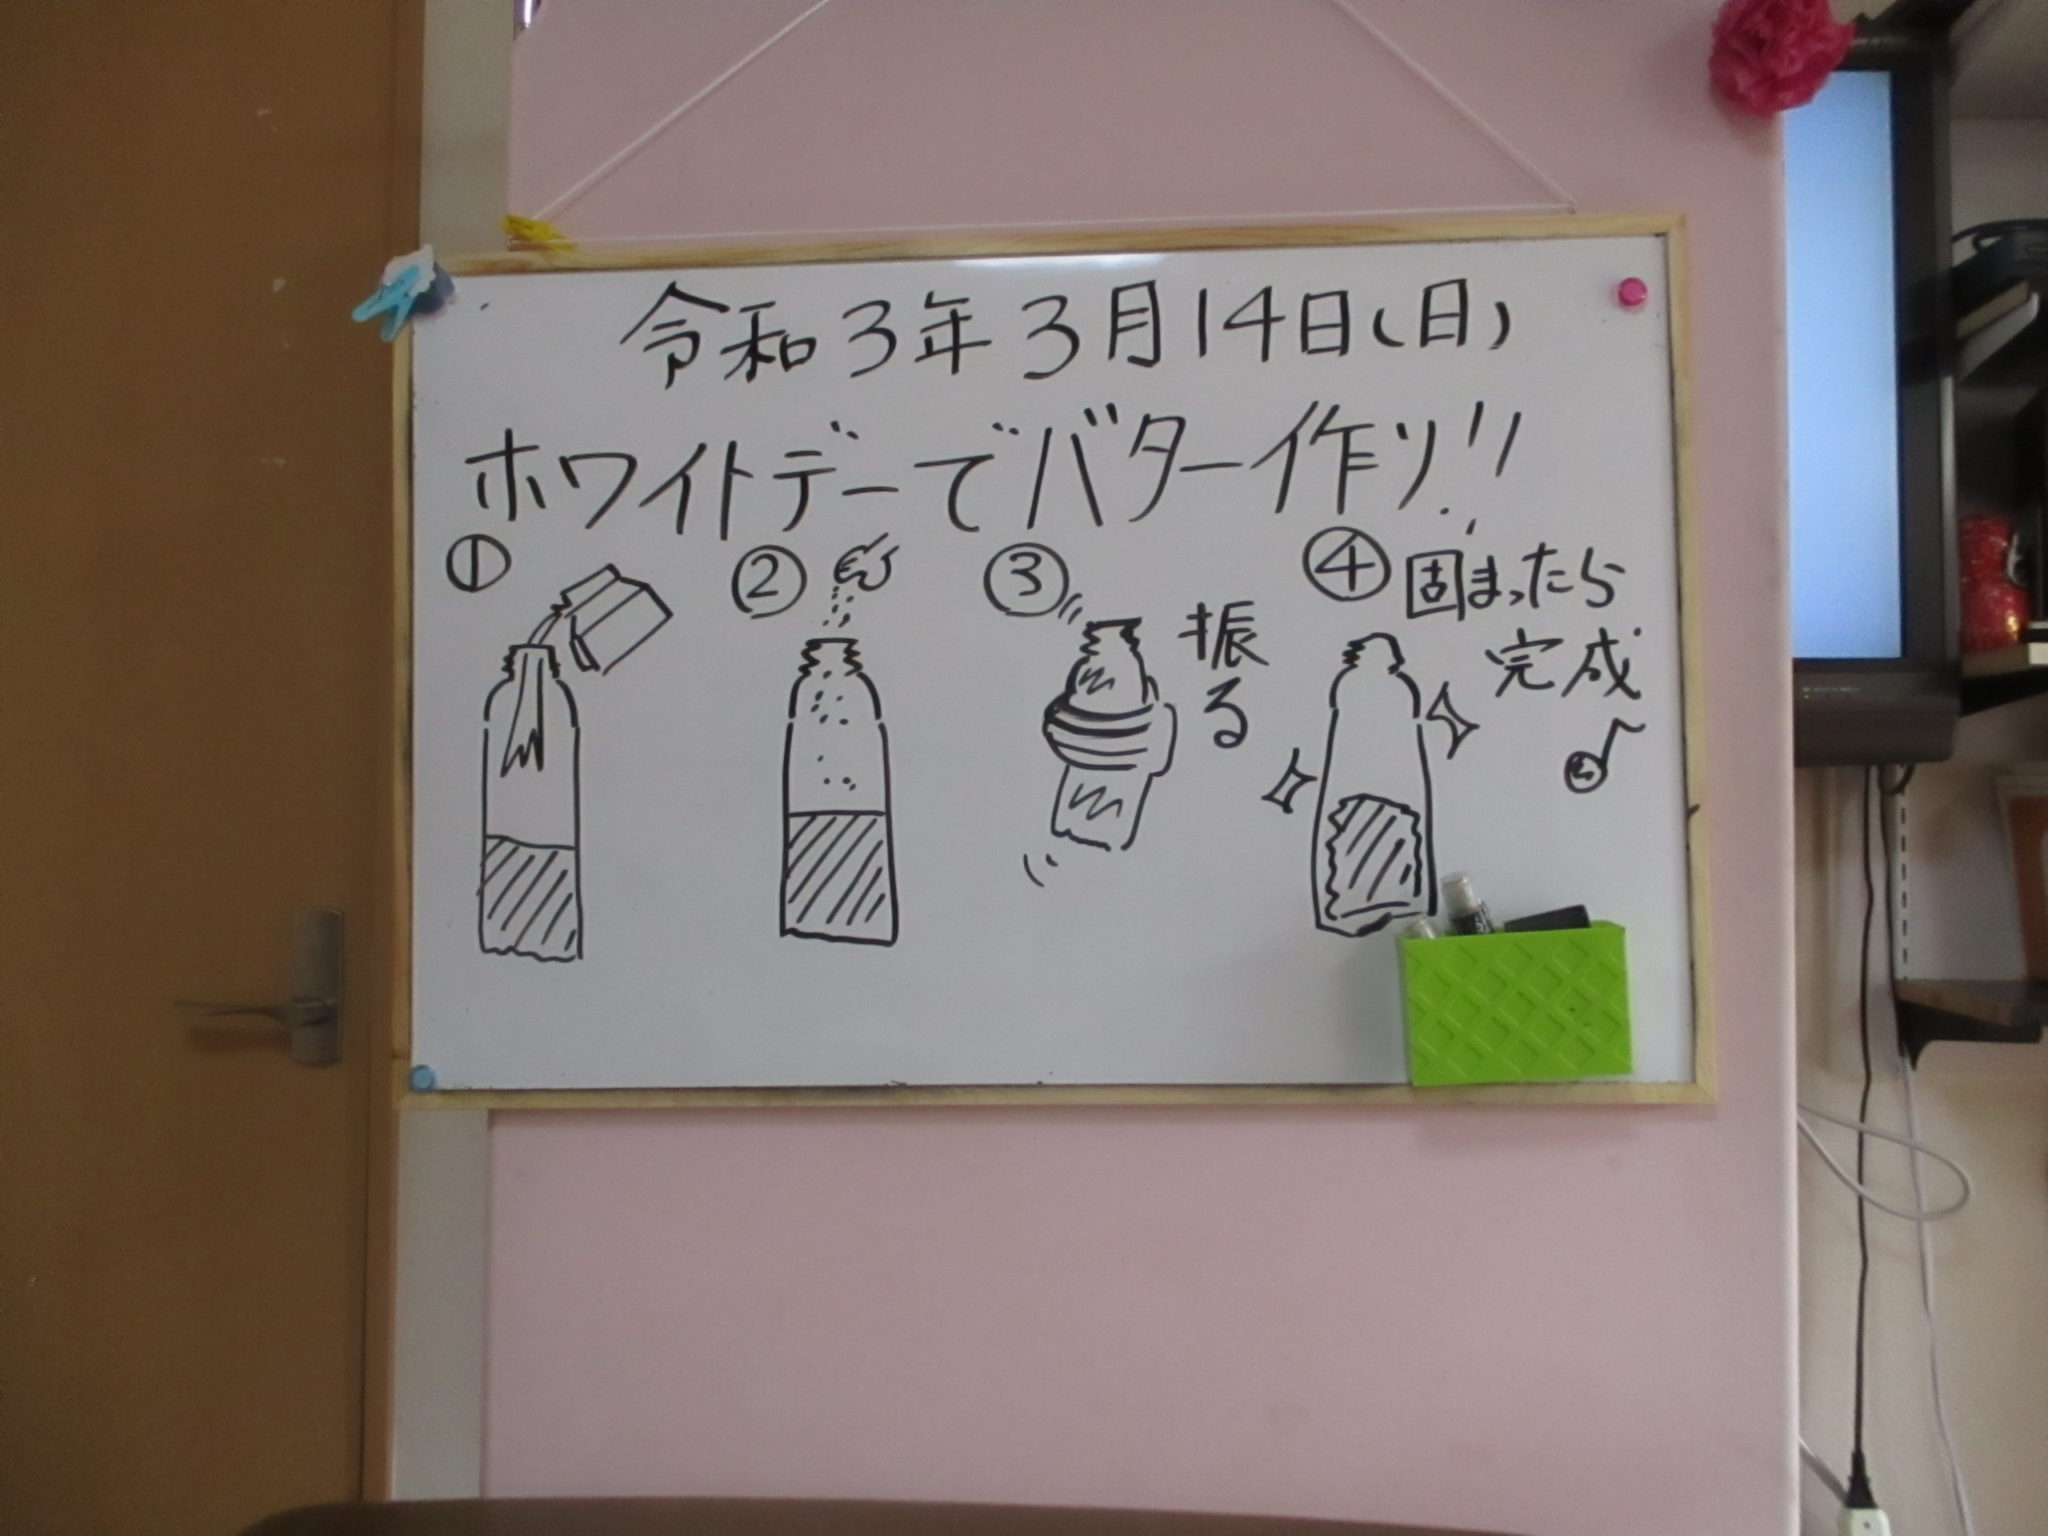 令和3年3月14日(日)
ホワイトデーでバター作り!!
①
②
③
振る
④ 固まったら
完成♪